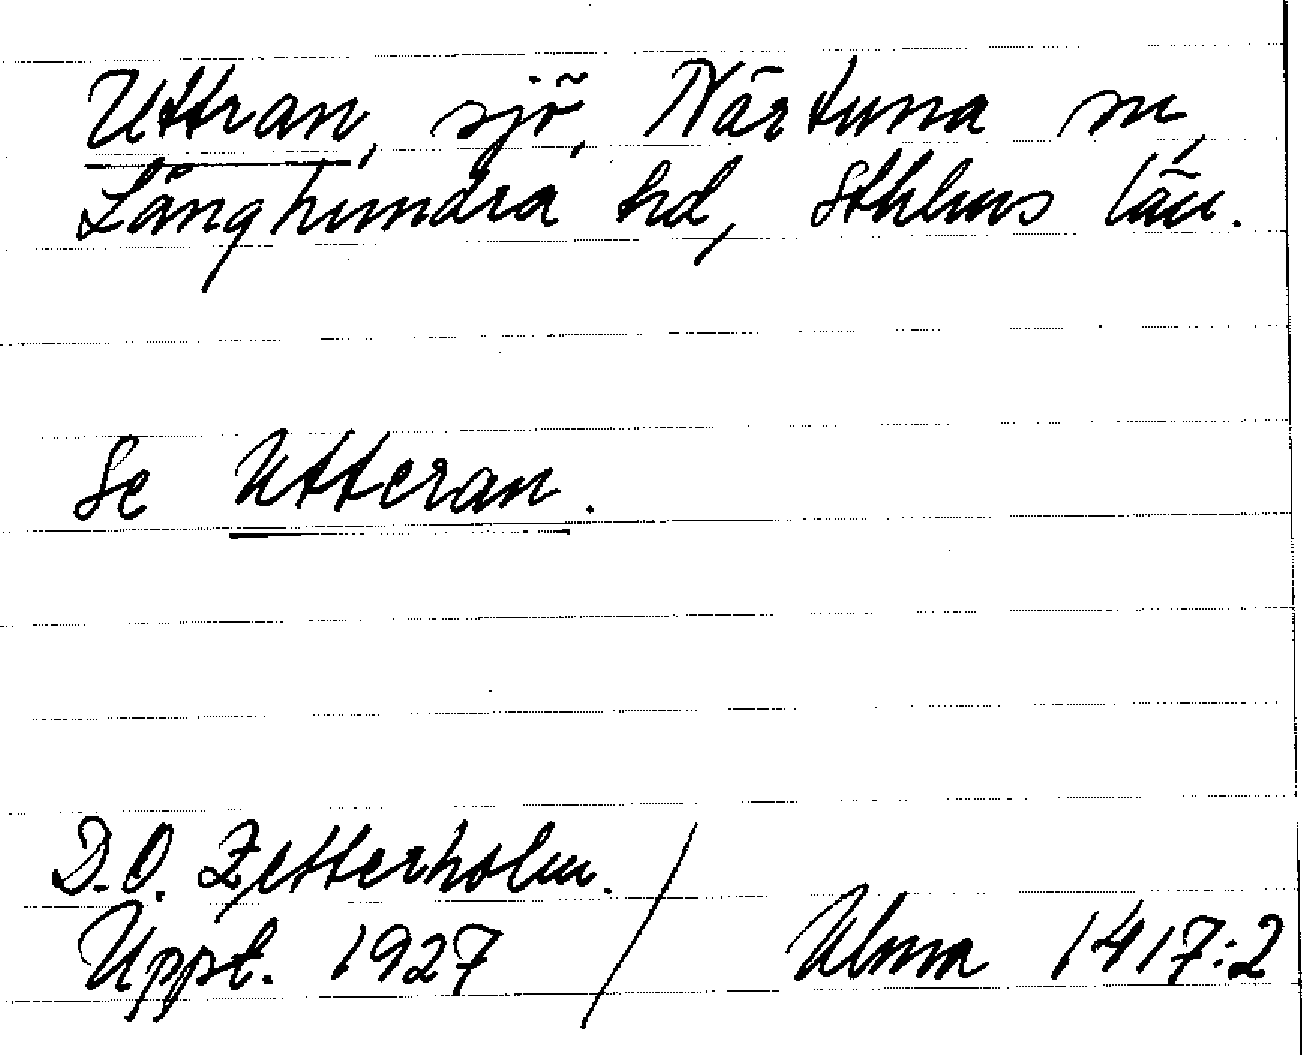 Uttran, sjö, Närtuna sn,
Långhundra hd, Sthlms län.
Se Utteran.
D.O. Zetterholm. /
Uppt. 1927 Ulma 1417:2